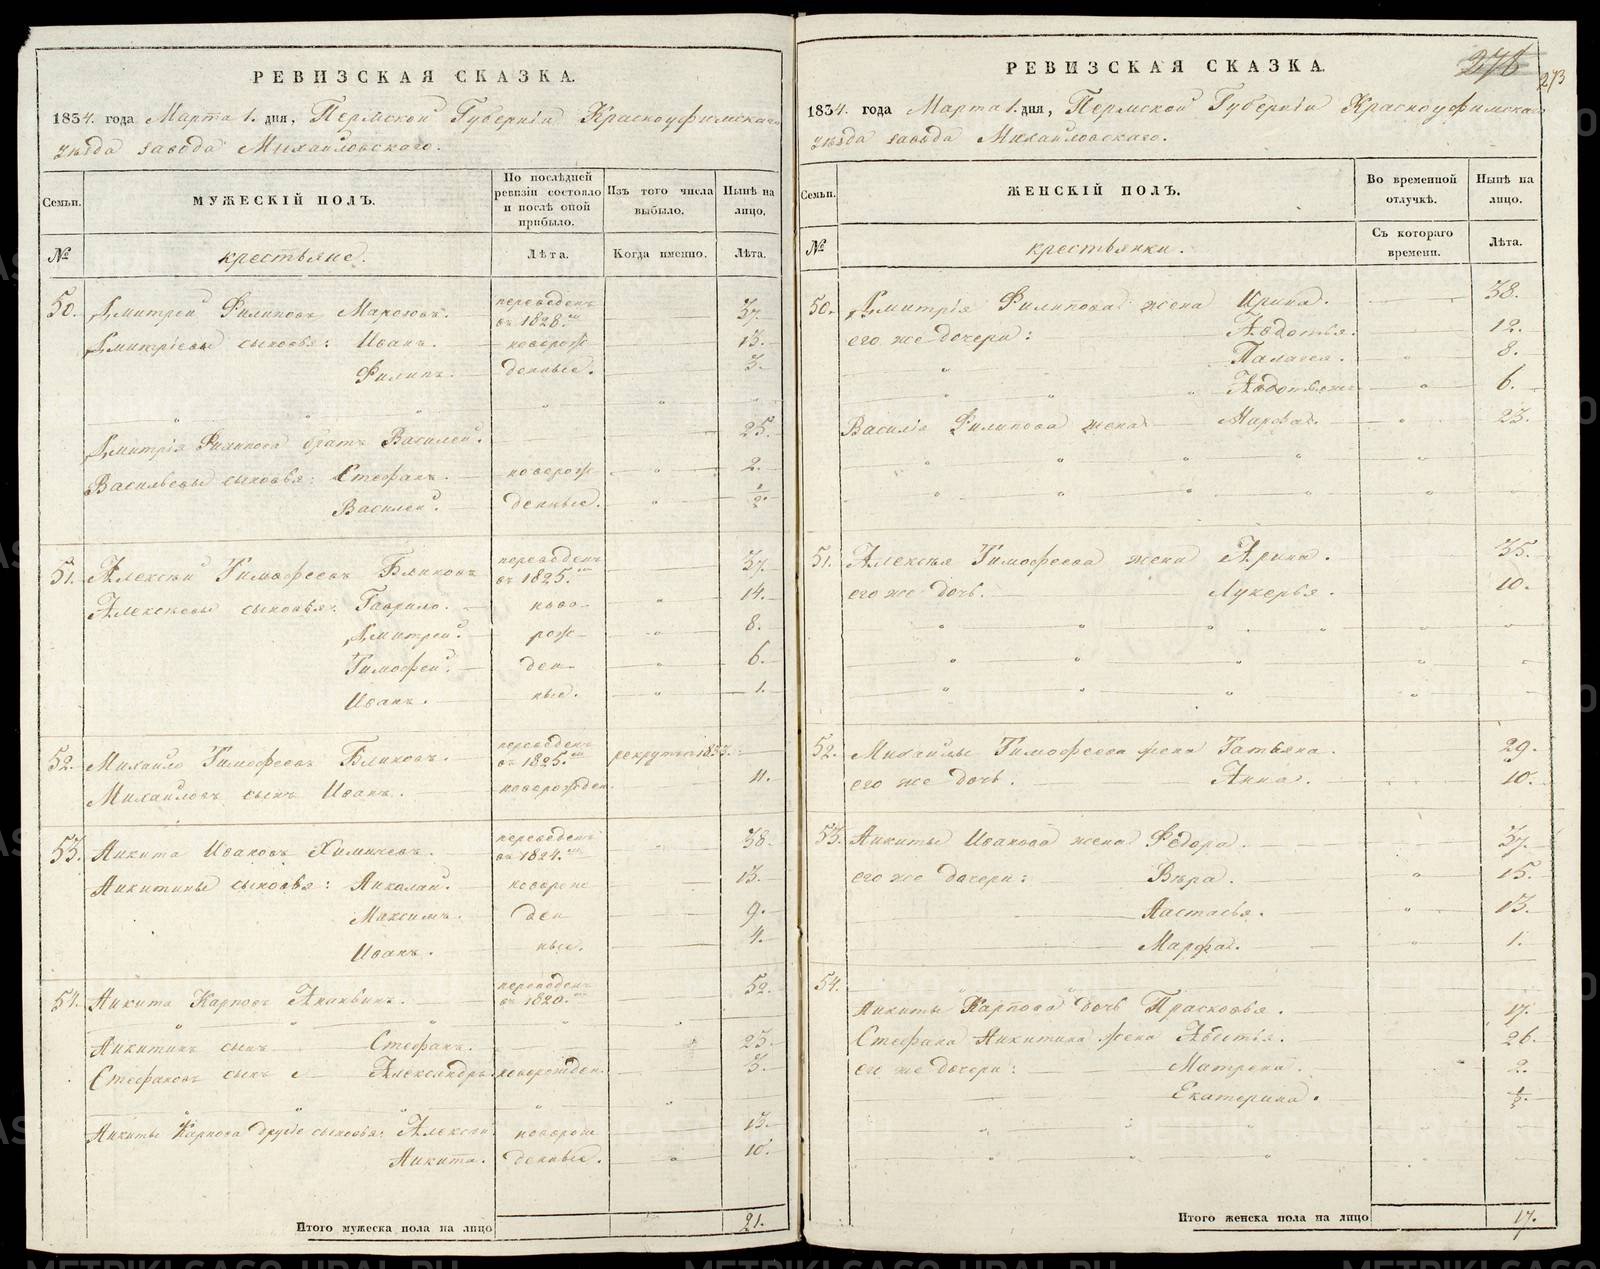 РЕВИЗСКАЯ СКАЗКА.
1834. года Марта 1. дня, Пермской Губерніи Красноуфимскаго
уѣзда завода Михайловскаго.
Семьи.
МУЖЕСКІЙ ПОЛЪ.
По послѣдней ревизіи состояло и послѣ оной прибыло.
Изъ того числа выбыло.
Нынѣ на лицо.
№
крестьяне.
Лѣта.
Когда именно.
Лѣта.
50. Дмитрей Филиповъ переведенъ въ 1828. 37.
Дмитріевы сыновья: Иванъ. новорож 13.
Филипъ. денные. 3.
Дмитрія Филипова братъ Василей. 25.
Васильевы сыновья: Стефанъ. новорож 2.
Василей. денные. 1/2.
51. Алексѣй Тимофеевъ Блиновъ переведенъ въ 1825. 37.
Алексѣевы сыновья: Гаврило. ново 14.
Дмитрей. рож 8.
Тимофей. ден 6.
Иванъ. ные. 1.
52. Михайло Тимофеевъ Блиновъ. переведенъ въ 1825. рекрутъ
Михайловъ сынъ Иванъ. новорожден. 11.
53. Никита Ивановъ переведенъ въ 1824. 38.
Никитины сыновья: Николай. новорож 13.
Максимъ. ден 9.
Иванъ. ные. 4.
54. Никита Карповъ Ананьинъ. переведенъ въ 1820. 52.
Никитинъ сынъ Стефанъ. 23.
Стефановъ сынъ Александръ. новорожден. 3.
Никиты Карпова другіе сыновья: Алексей новорож 13.
Никита. денные. 10.
Итого мужеска пола на лицо 21.
РЕВИЗСКАЯ СКАЗКА.
276
273
1834. года Марта 1. дня, Пермской Губерніи Красноуфимскаго
уѣзда завода Михайловскаго.
Семьи.
ЖЕНСКІЙ ПОЛЪ.
Во временной отлучкѣ.
Нынѣ на лицо.
№
крестьянки.
Съ котораго времени.
Лѣта.
50. Дмитрія Филипова жена Ирина. 38.
его же дочери: Авдотья. 12.
Палагея. 8.
6.
Василія Филипова жена Марфа. 23.
51. Алексѣя Тимофеева жена Арина. 35.
его же дочь. Лукерья. 10.
52. Михайлы Тимофеева жена Татьяна. 29.
его же дочь. Анна. 10.
53. Никиты Иванова жена Федора. 37.
его же дочери: Вѣра. 15.
Настасья. 13.
Марфа. 1.
54.
Никиты Карпова дочь Прасковья. 17.
Стефана Никитина жена 26.
его же дочери: Матрена. 2.
Екатерина. 1/2.
Итого женска пола на лицо 17.
METRIKI.GASO-URAL.RU